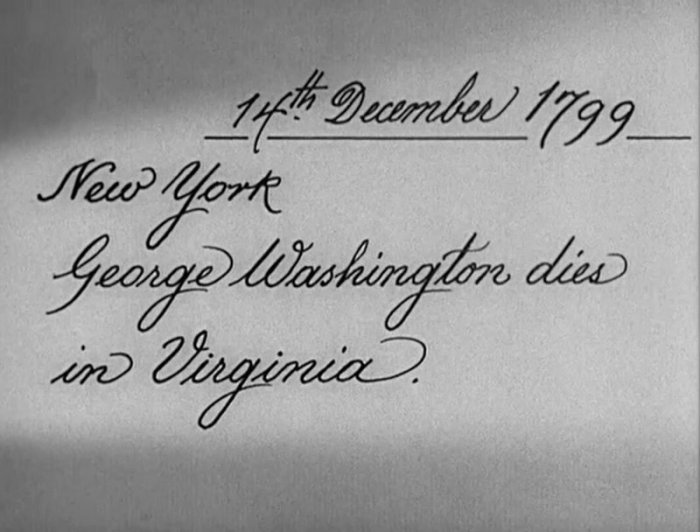 14th December 1799
New York
George Washington dies
in Virginia.